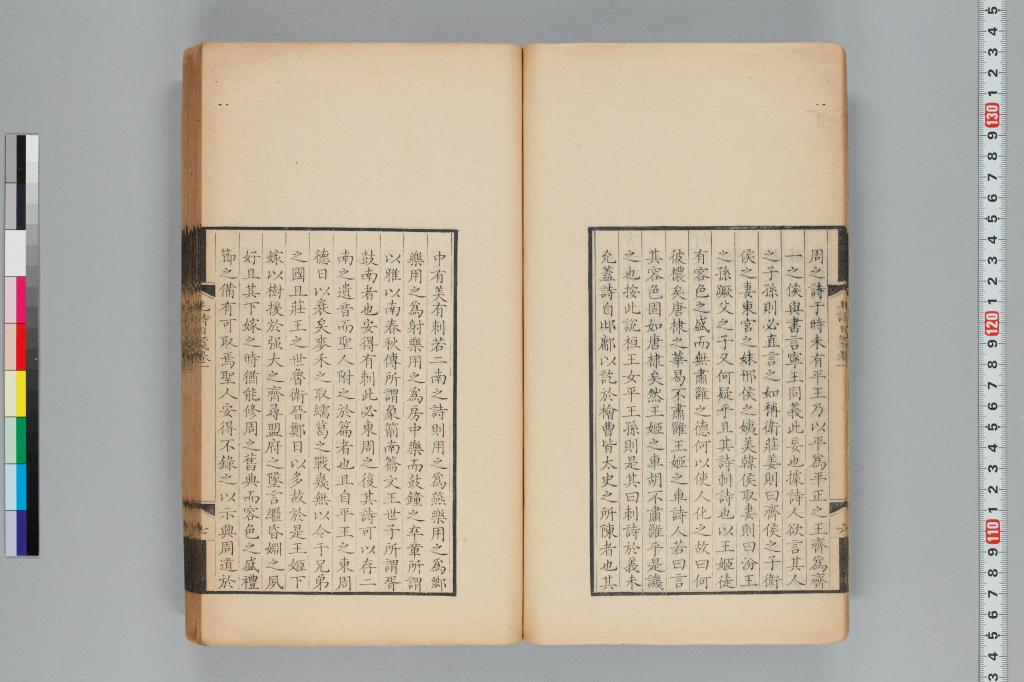 周之詩于時未有平王乃以平爲平正之王齊爲齊
一之侯與書言寧王同義此妄也據詩人欲言其人
之子孫則必直言之如稱衛莊姜則曰齊侯之子衛
侯之妻東宮之妹邢侯之姨美韓侯取妻則曰汾王
之孫蹶父之子又何疑乎且其詩刺詩也以王姬徒
有容色之盛而無肅雝之德何以使人化之故曰何
彼襛矣唐棣之華曷不肅雝王姬之車詩人若曰言
其容色固如唐棣矣然王姬之車胡不肅雝乎是譏
之也按此說桓王女平王孫則是其曰刺詩於義未
允蓋詩自邶鄘以訖於檜曹皆太史之所陳者也其
中有美有刺若二南之詩則用之爲燕樂用之爲鄉
樂用之爲射樂用之爲房中樂而鼓鐘之卒章所謂
以雅以南春秋傳所謂象箾南籥文王世子所謂胥
鼓南者也安得有刺此必東周之後其詩可以存二
南之遺音而聖人附之於篇者也且自平王之東周
德日以衰矣麥禾之取繻葛之戰幾無以令于兄弟
之國且莊王之世魯衛晉鄭日以多故於是王姬下
嫁以樹援於强大之齊尋盟府之墜言繼昏姻之夙
好且其下嫁之時猶能修周之舊典而容色之盛禮
節之備有可取焉聖人安得不錄之以示興周道於
七